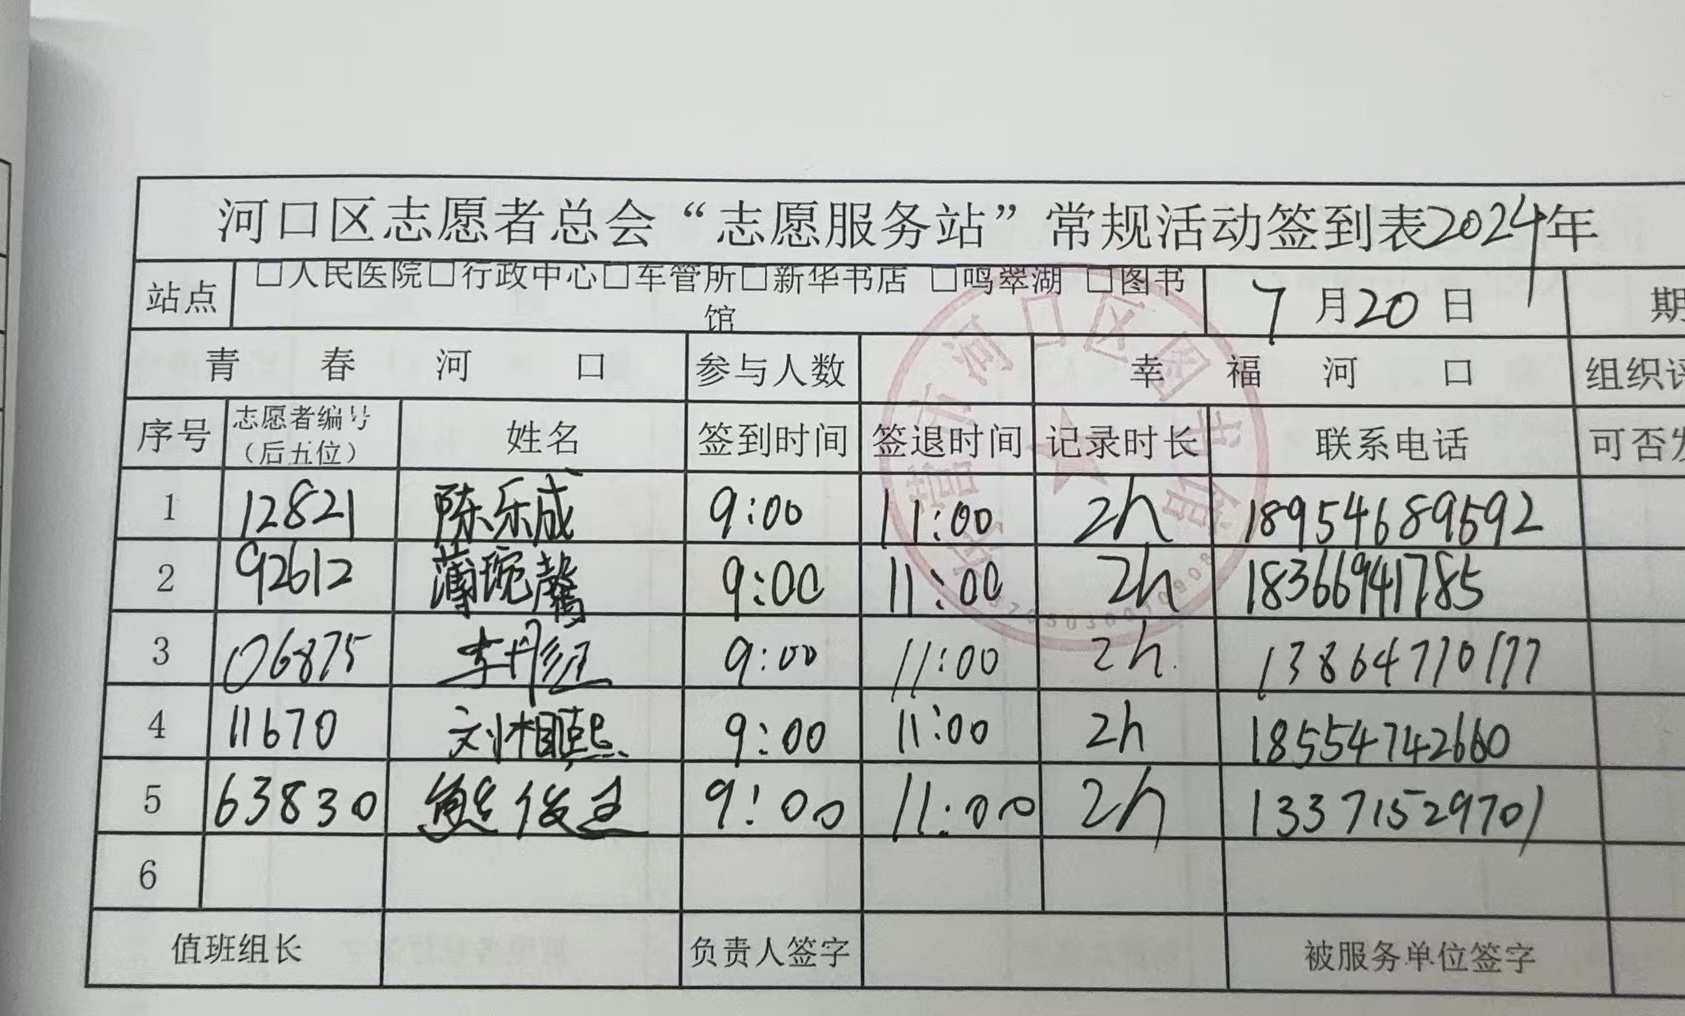 河口区志愿者总会“志愿服务站”常规活动签到表2024年
站点 □人民医院□行政中心□车管所□新华书店 □鸣翠湖 □图书馆 7月20日 期
青春河口 参与人数 幸福河口 组织评
序号 志愿者编号（后五位） 姓名 签到时间 签退时间 记录时长 联系电话 可否发
1 12821 陈乐成 9:00 11:00 2h 18954689592
2 92612 薄琬馨 9:00 11:00 2h 18366941785
3 06875 李丹红 9:00 11:00 2h. 13864770177
4 11670 刘相熙 9:00 11:00 2h 18554742660
5 63830 熊俊 9:00 11:00 2h 13371529701
6
值班组长 负责人签字 被服务单位签字
营市河口区图书馆